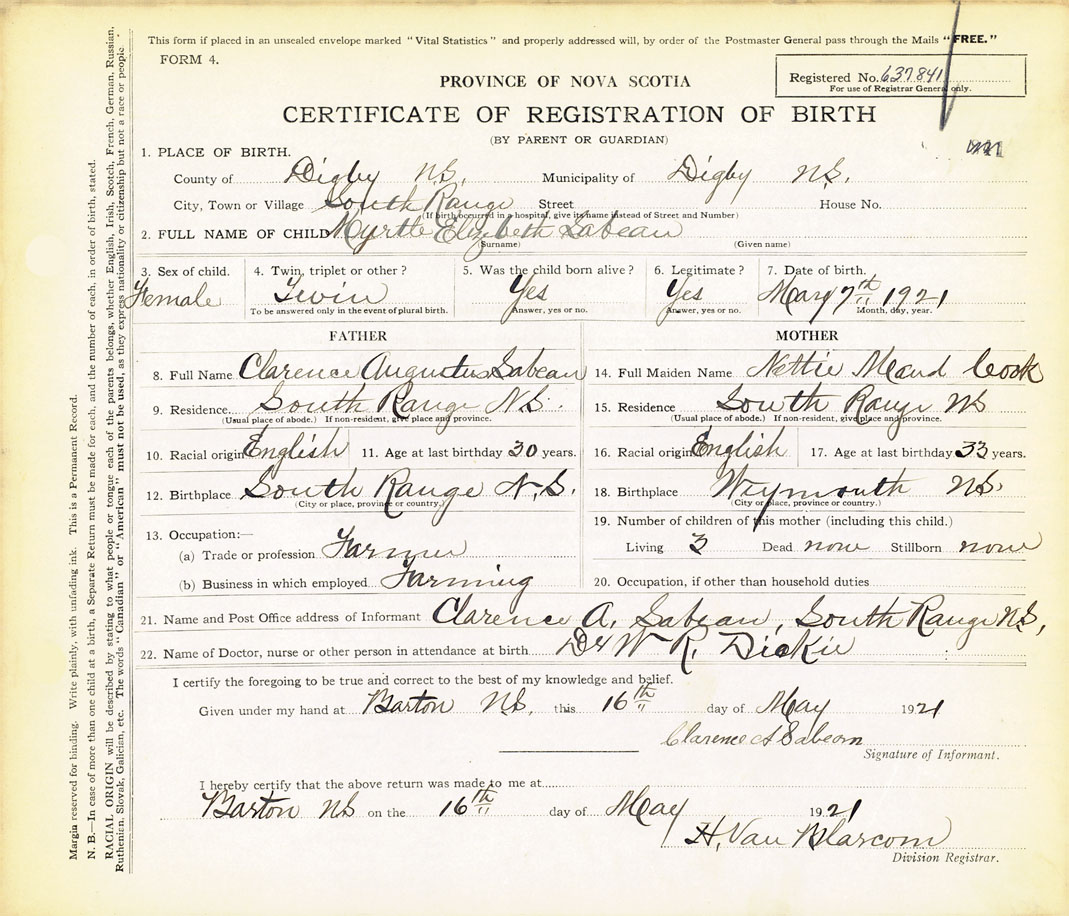 This form if placed in an unsealed envelope marked "Vital Statistics" and properly addressed will, by order of the Postmaster General pass through the Mails "FREE."
FORM 4.
Registered No. 637841
For use of Registrar General only.
PROVINCE OF NOVA SCOTIA
CERTIFICATE OF REGISTRATION OF BIRTH
(BY PARENT OR GUARDIAN)
1. PLACE OF BIRTH.
County of Digby N.S. Municipality of Digby N.S.
City, Town or Village South Range Street House No.
(If birth occurred in a hospital, give its name instead of Street and Number)
2. FULL NAME OF CHILD Myrtle Elizabeth Sabean
(Surname) (Given name)
3. Sex of child. 4. Twin, triplet or other? 5. Was the child born alive? 6. Legitimate? 7. Date of birth.
Female Twin Yes Yes May 7th 1921
To be answered only in the event of plural birth. Answer, yes or no. Answer, yes or no. Month, day, year.
FATHER MOTHER
8. Full Name Clarence Augustus Sabean 14. Full Maiden Name Nettie Maud Cook
9. Residence South Range N.S. 15. Residence South Range NS
(Usual place of abode.) If non-resident, give place and province. (Usual place of abode.) If non-resident, give place and province.
10. Racial origin English 11. Age at last birthday 30 years. 16. Racial origin English 17. Age at last birthday 33 years.
12. Birthplace South Range N.S. 18. Birthplace Weymouth N.S.
(City or place, province or country.) (City or place, province or country.)
13. Occupation:— 19. Number of children of this mother (including this child.)
(a) Trade or profession Farmer Living 3 Dead none Stillborn none
(b) Business in which employed Farming 20. Occupation, if other than household duties
21. Name and Post Office address of Informant Clarence A. Sabean, South Range N.S,
22. Name of Doctor, nurse or other person in attendance at birth Dr W R. Dickie
I certify the foregoing to be true and correct to the best of my knowledge and belief.
Given under my hand at Barton N.S. this 16th day of May 1921
Clarence A Sabean
Signature of Informant.
I hereby certify that the above return was made to me at
Barton NS on the 16th day of May 1921
H. Van Blarcom
Division Registrar.
Margin reserved for binding. Write plainly, with unfading ink. This is a Permanent Record.
N. B.—In case of more than one child at a birth, a Separate Return must be made for each, and the number of each, in order of birth, stated.
RACIAL ORIGIN will be described by stating to what people or tongue each of the parents belongs, whether English, Irish, Scotch, French, German, Russian,
Ruthenian, Slovak, Galician, etc. The words "Canadian" or "American" must not be used, as they express nationality or citizenship but not a race or people.